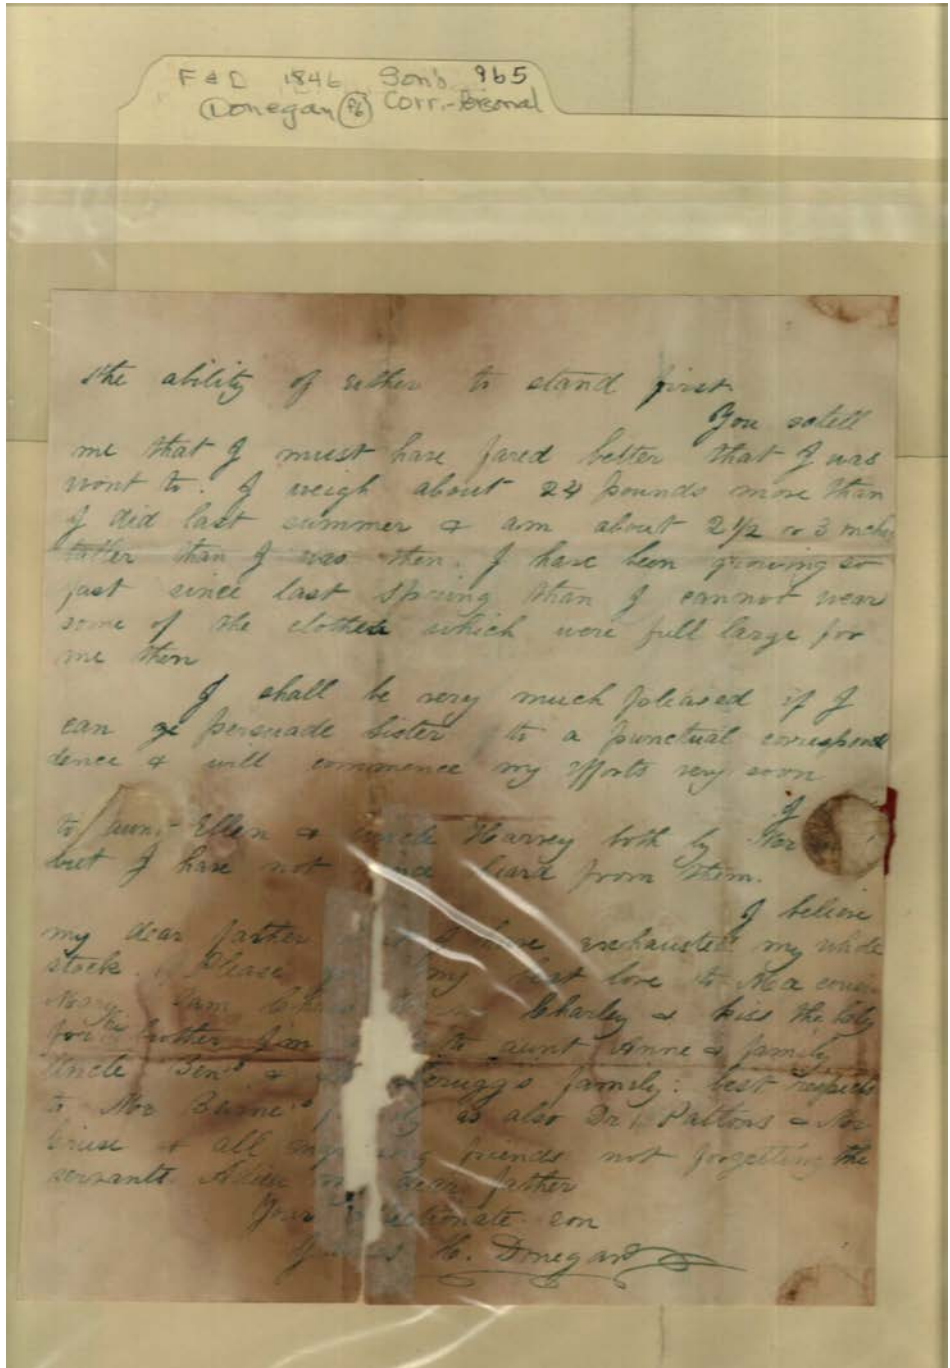 F & D 1846 Son's 965
(Donegan P6) Corr.-Personal
the ability of either to stand first.
You
me that I must have fared better that I was
wont to. I weigh about 24 pounds more than
I did last summer & am about 2 1/2 or 3 inches
taller than I was then. I have been growing so
fast since last Spring than I cannot wear
some of the clothes which were full large for
me then
I shall be very much pleased if I
can persuade sister to a punctual correspon
dence & will commence my efforts very soon
I
to aunt Ellen & uncle Harvey both by
but I have not heard from them.
I believe
my dear father I have exhausted my whole
stock. Please my best love to Ma cousin
Mary Sam Charley & kiss the baby
for brother Jim to aunt Anne & family
Uncle Ben's & family: best respects
to Mr as also Dr Pattons & Mr
& all friends not forgetting the
servants. Adieu dear father
Your son
H. Donegan